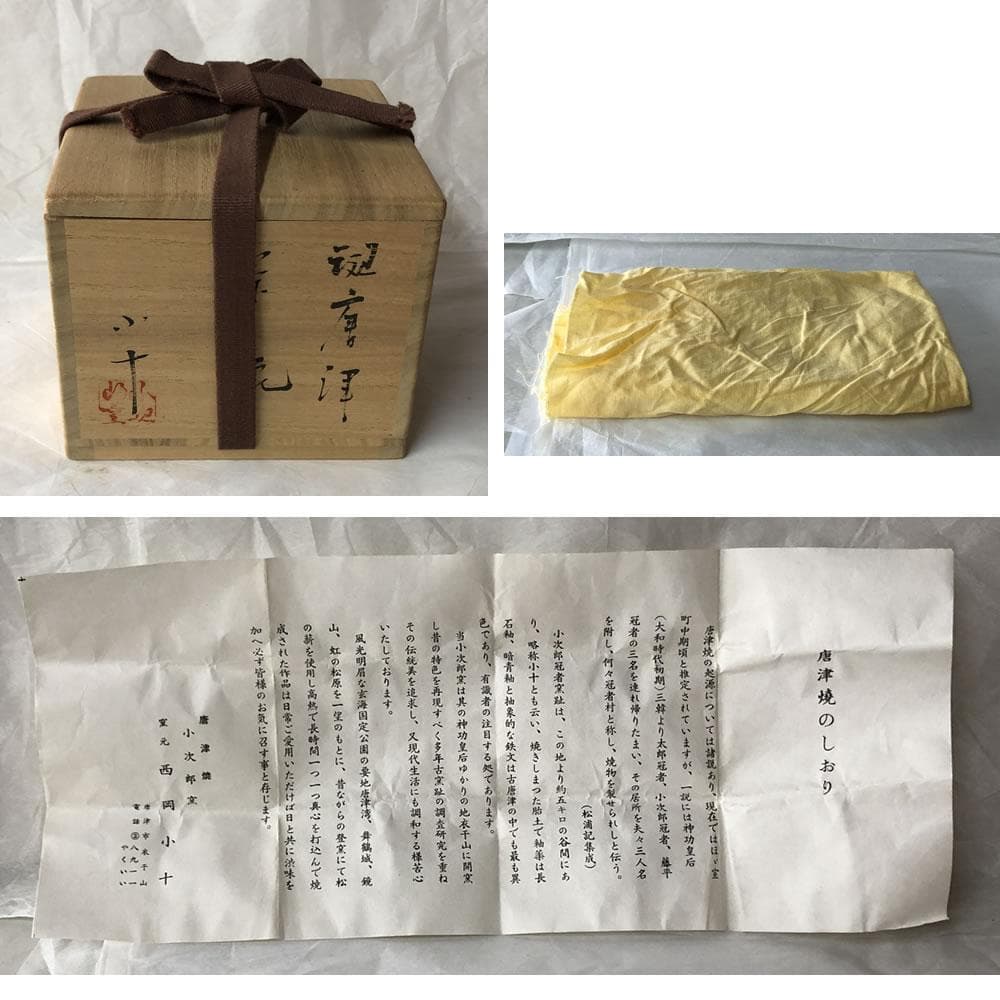 唐津
小十
唐津燒のしおり
唐津焼の起源については諸説あり、現在ではほゞ室
町中期頃と推定されていますが、一説には神功皇后
(大和時代初期)三韓より太郎冠者、小次郎冠者、藤平
冠者の三名を連れ帰りたまい、その居所を夫々三人名
を附し、何々冠者村と称し、焼物を製せられしと伝う。
(松浦記集成)
小次郎冠者窯趾は、この地より約五キロの谷間にあ
り、略称小十とも云い、焼きしまつた胎土で釉薬は長
石釉、暗青釉と抽象的な鉄文は古唐津の中でも最も異
色であり、有識者の注目する処であります。
当小次郎窯は具の神功皇后ゆかりの地衣干山に開窯
し昔の特色を再現すべく多年古窯趾の調査研究を重ね
その伝統美を追求し、又現代生活にも調和する様苦心
いたしております。
風光明眉な玄海国定公園の要地唐津湾、舞鶴城、鏡
山、虹の松原を一望のもとに、昔ながらの登窯にて松
の薪を使用し高熱で長時間一つ一つ真心を打込んで焼
成された作品は日常ご愛用いただけば日と共に渋味を
加へ必ず皆様のお気に召す事と存じます。
唐津燒
小次郎窯
窯元 西岡小十
唐津市衣干山
電話③八九一一
やくいい